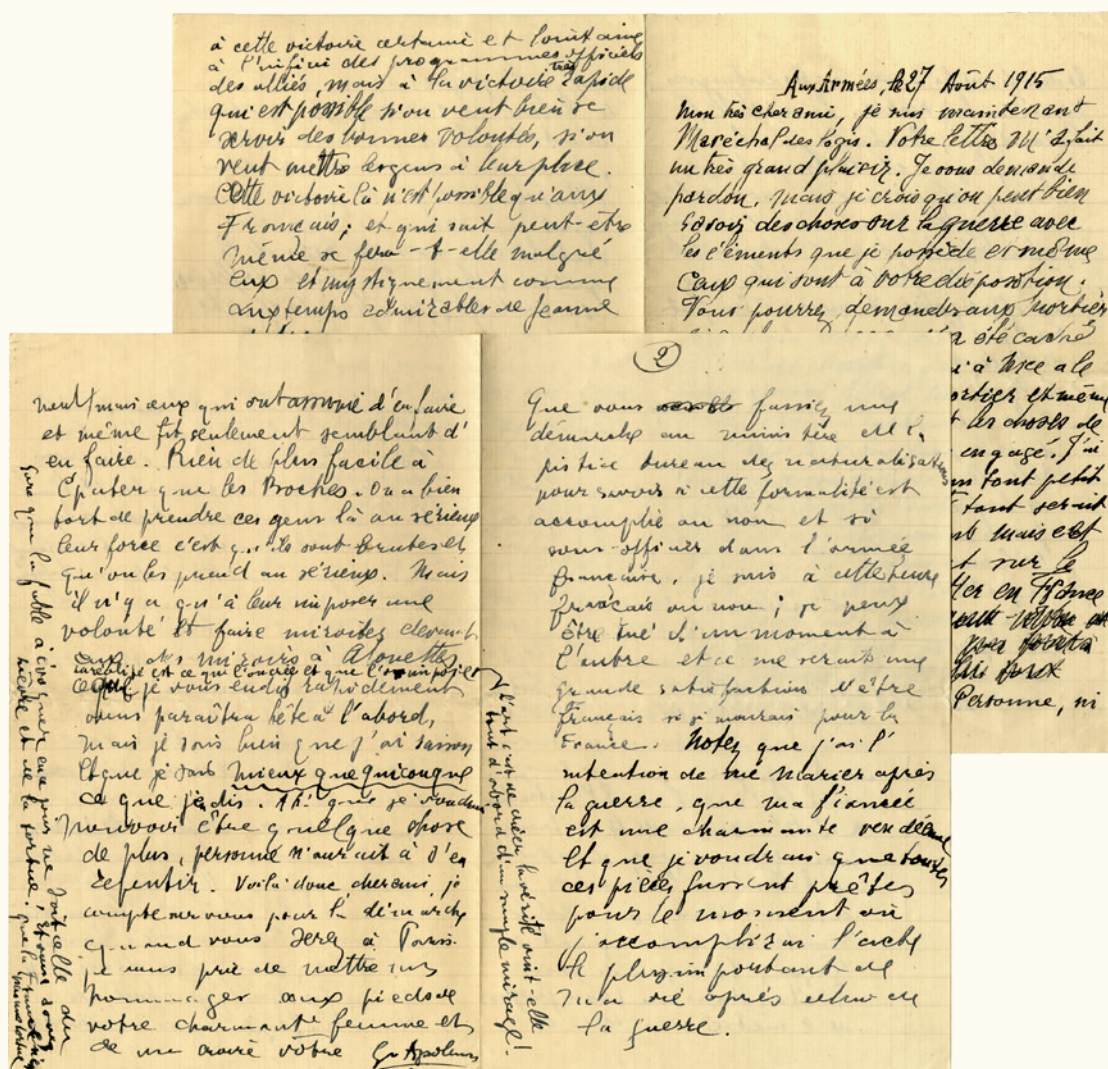 à cette victoire certaine et lointaine
à l'infini des programmes officiels
des alliés, mais à la victoire très rapide
qui est possible si on veut bien se
servir des bonnes volontés, si on
veut mettre les gens à leur place.
Cette victoire là n'est possible qu'aux
Français; et qui sait peut-être
même se fera-t-elle malgré
eux et mystiquement comme
aux temps admirables de Jeanne
Aux Armées, le 27 Août 1915
Mon très cher ami, je suis maintenant
Maréchal des logis. Votre lettre m'a fait
un très grand plaisir. Je vous demande
pardon, mais je crois qu'on peut bien
savoir des choses sur la guerre avec
les éléments que je possède et même
ceux qui sont à votre disposition.
Vous pourrez demander aux Mortier
a été
à Nice a le
Mortier et même
les choses de
engagé. J'ai
tout petit
tout serait
mais c'est
sur le
en France
Personne, ni
mais ceux qui ont assumé d'en faire
et même fit seulement semblant d'
en faire. Rien de plus facile à
épater que les Boches. On a bien
tort de prendre ces gens là au sérieux
leur force c'est qu'ils sont brutes et
qu'on les prend au sérieux. Mais
il n'y a qu'à leur imposer une
volonté et faire miroiter devant
eux des miroirs à Alouettes
la réalité c'est ce qu'on crée et que l'on impose
ce que je vous en dis rapidement
vous paraîtra bête à l'abord,
mais je sais bien que j'ai raison
et que je sais mieux que quiconque
ce que je dis. Ah! que je voudrais
pouvoir être quelque chose
de plus, personne n'aurait à s'en
repentir. Voilà donc, cher ami, je
compte sur vous pour la démarche
quand vous serez à Paris.
je vous prie de mettre mes
hommages aux pieds de
votre charmante femme et
de me croire vôtre Gui Apollinaire
que la fable à évoquer un jour ne soit celle du
lièvre et de la tortue,
L'art c'est de créer la vérité soit-elle
tout d'abord d'un simple mirage!
2
Que vous fassiez une
démarche au ministère de la
justice bureau des naturalisations
pour savoir si cette formalité est
accomplie ou non et si
sous-officier dans l'armée
française, je suis à cette heure
français ou non; je peux
être tué d'un moment à
l'autre et ce me serait une
grande satisfaction d'être
Français si je mourais pour la
France. Notez que j'ai l'
intention de me marier après
la guerre, que ma fiancée
est une charmante vendéenne
et que je voudrais que toutes
ces pièces fussent prêtes
pour le moment où
j'accomplirai l'acte
le plus important de
ma vie après celui de
la guerre.